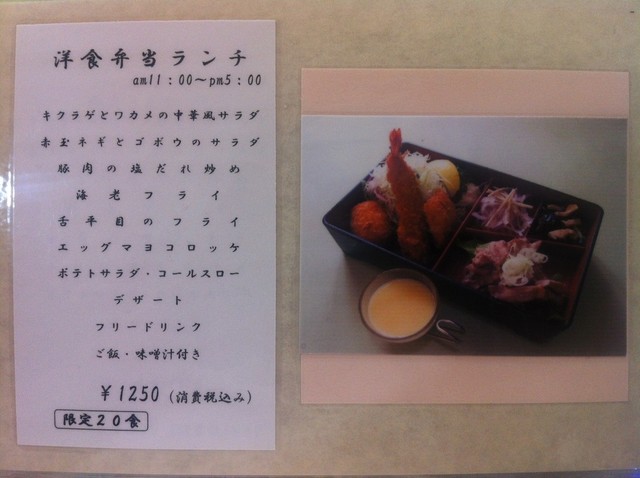 洋食弁当ランチ
am11：00～pm5：00
キクラゲとワカメの中華風サラダ
赤玉ネギとゴボウのサラダ
豚肉の塩だれ炒め
海老フライ
舌平目のフライ
エッグマヨコロッケ
ポテトサラダ・コールスロー
デザート
フリードリンク
ご飯・味噌汁付き
￥1250（消費税込み）
限定２０食